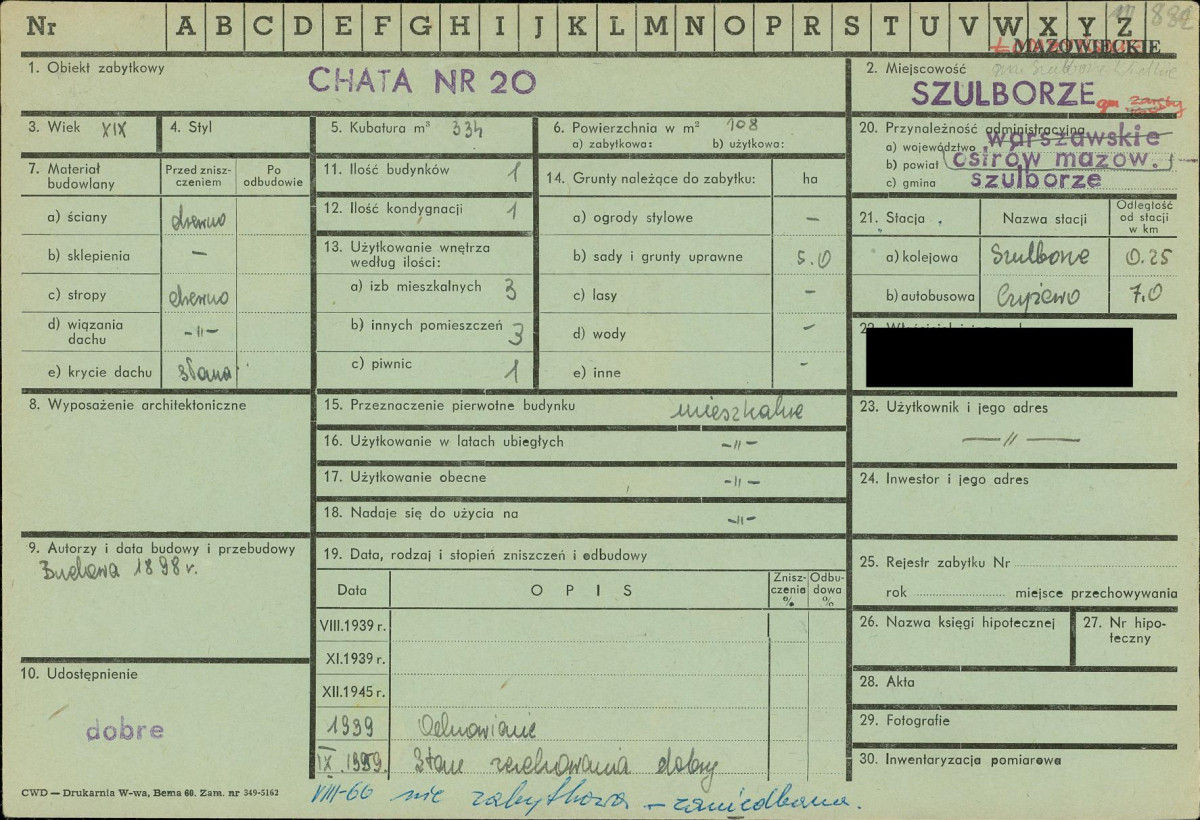 Nr A B C D E F G H I J K L M N O P R S T U V W X Y Z
MAZOWIECKIE
1. Obiekt zabytkowy
CHATA NR 20
2. Miejscowość
SZULBORZE
gm
3. Wiek XIX
4. Styl
5. Kubatura m³ 334
6. Powierzchnia w m² 108
a) zabytkowa: b) użytkowa:
20. Przynależność administracyjna
a) województwo warszawskie
b) powiat ostrów mazow.
c) gmina szulborze
7. Materiał budowlany
Przed zniszczeniem
Po odbudowie
a) ściany drewno
b) sklepienia —
c) stropy drewno
d) wiązania dachu -„-
e) krycie dachu słoma
11. Ilość budynków 1
12. Ilość kondygnacji 1
13. Użytkowanie wnętrza według ilości:
a) izb mieszkalnych 3
b) innych pomieszczeń 3
c) piwnic 1
14. Grunty należące do zabytku: ha
a) ogrody stylowe —
b) sady i grunty uprawne 5.0
c) lasy -
d) wody -
e) inne -
21. Stacja
Nazwa stacji
Odległość od stacji w km
a) kolejowa Szulborze 0.25
b) autobusowa Czyżewo 7.0
8. Wyposażenie architektoniczne
15. Przeznaczenie pierwotne budynku mieszkalne
16. Użytkowanie w latach ubiegłych -„-
17. Użytkowanie obecne -„-
18. Nadaje się do użycia na -„-
23. Użytkownik i jego adres
—„—
24. Inwestor i jego adres
9. Autorzy i data budowy i przebudowy
Budowa 1898 r.
19. Data, rodzaj i stopień zniszczeń i odbudowy
Data
OPIS
Zniszczenia %
Odbudowa %
VIII.1939 r.
XI.1939 r.
XII.1945 r.
1939 Odnowianie
IX.1959. Stan zachowania dobry
VIII-66 nie zabytkowa - zaniedbana.
25. Rejestr zabytku Nr
rok miejsce przechowywania
26. Nazwa księgi hipotecznej
27. Nr hipoteczny
28. Akta
29. Fotografie
30. Inwentaryzacja pomiarowa
10. Udostępnienie
dobre
CWD — Drukarnia W-wa, Bema 60. Zam. nr 349-5162